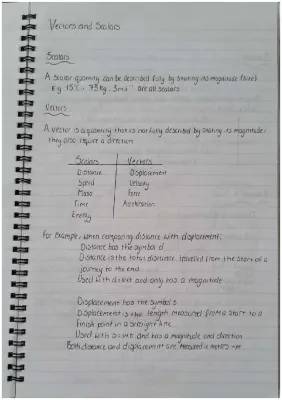 Vectors and Scalars
Scalars
A scalar quantity can be described fully by stating its magnitude (size)
Eg 15°C, 75kg, 3ms⁻¹ are all scalars
Vectors
A vector is a quantity that is not fully described by stating its magnitude,
they also require a direction
Scalars Vectors
Distance Displacement
Speed Velocity
Mass Force
Time Acceleration
Energy
For Example, when comparing distance with displacement:
Distance has the symbol d
Distance is the total distance travelled from the start of a
journey to the end
Used with and only has a magnitude
Displacement has the symbol s
Displacement is the length measured from a start to a
finish point in a straight line
Used with and has a magnitude and direction
Both distance and displacement are measured in metres -m